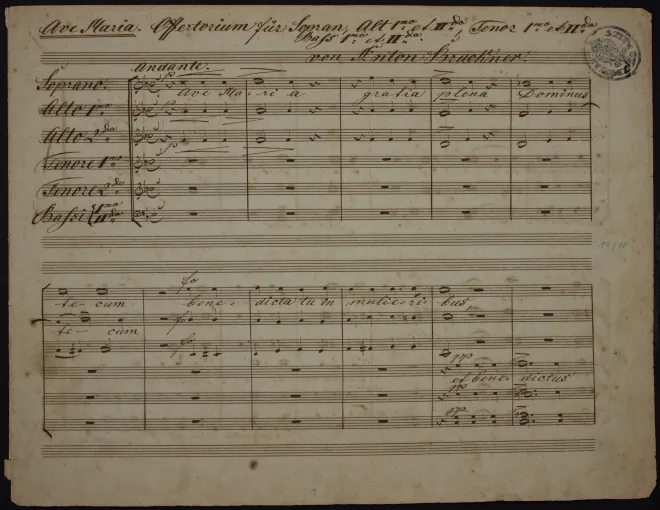 Ave Maria. Offertorium für Sopran, Alt 1mo et IIdo, Tenor 1mo et IIdo
Bass 1mo et IIdo
von Anton Bruckner.
Andante.
Soprano. p
Ave Ma-ri a gratia plena Dominus
Alto 1mo
Alto 2do
Tenore 1mo
Tenore 2do
Bassi 1mo
IIdo
fo
te- cum bene- dicta tu in mulie-ri bus
te- cum
fo
ppo
et bene- dictus
ppo
ppo
1